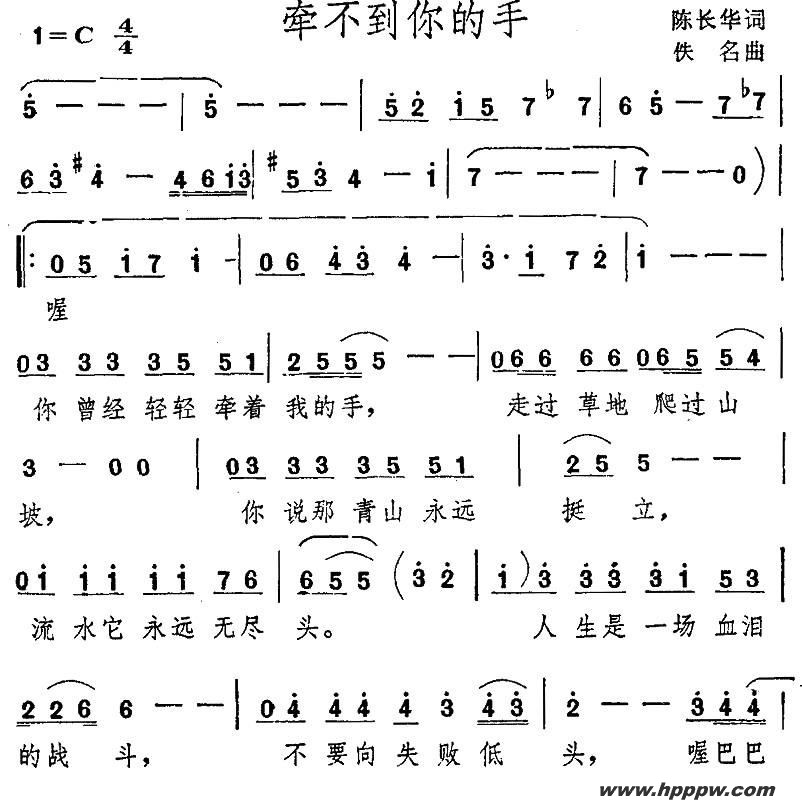 牵不到你的手
1=C 4/4
陈长华词
佚 名曲
5 — — — | 5 — — — | 5 2 1 5 7 ♭7 | 6 5 — 7 ♭7 |
6 3 #4 — 4 6 1 3 | #5 3 4 — 1 | 7 — — — | 7 — — 0 )
|: 0 5 1 7 1 — | 0 6 4 3 4 — | 3 · 1 7 2 | 1 — — — |
喔
0 3 3 3 3 5 5 1 | 2 5 5 5 — — | 0 6 6 6 6 0 6 5 5 4 |
你 曾经 轻轻 牵着 我的手, 走过 草地 爬过山
3 — 0 0 | 0 3 3 3 3 5 5 1 | 2 5 5 — — |
坡, 你 说那 青山 永远 挺 立,
0 1 1 1 1 1 7 6 | 6 5 5 ( 3 2 | 1 ) 3 3 3 3 1 5 3 |
流 水它 永远 无尽 头。 人 生是 一场 血泪
2 2 6 6 — — | 0 4 4 4 4 3 4 3 | 2 — — 3 4 4 |
的战 斗, 不 要向 失败低 头, 喔巴巴
www.hpppw.com